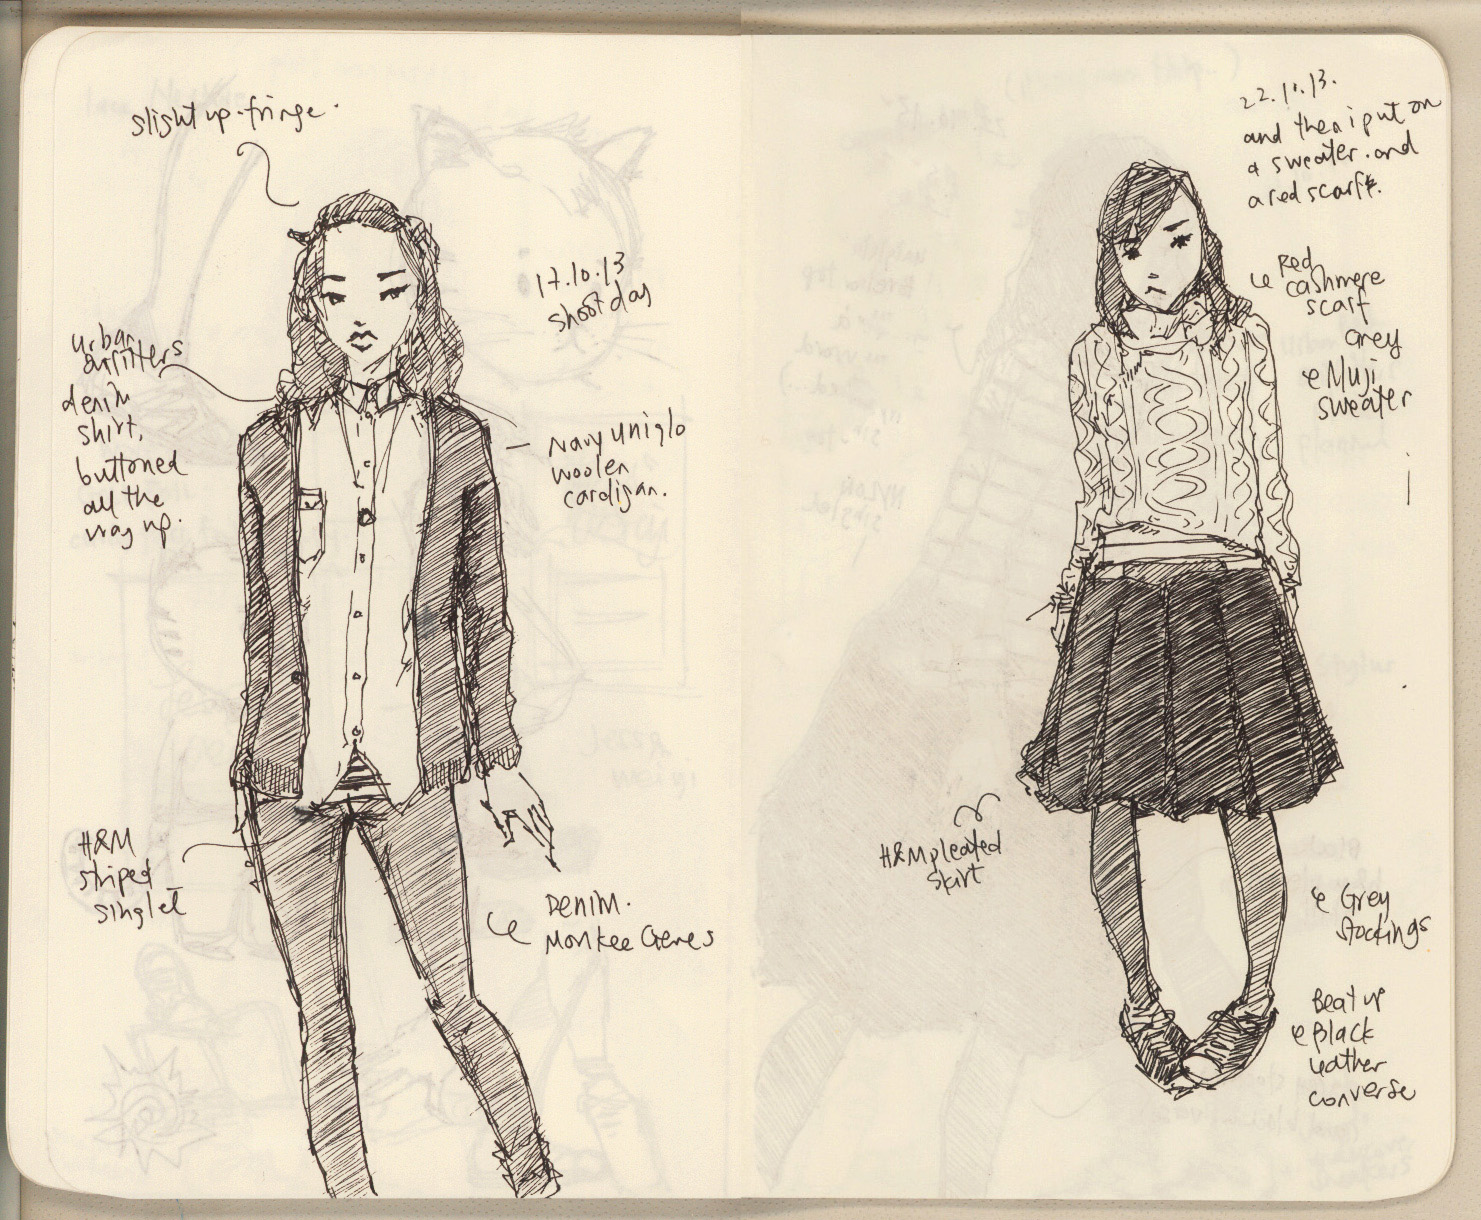 slight up-fringe.
17.10.13
shoot day
urban
outfitters
denim
shirt,
buttoned
all the
way up.
Navy uniqlo
woolen
cardigan.
H&M
striped
singlet
Denim.
Monkee Genes
22.10.13.
and then i put on
a sweater. and
a red scarf.
Red
cashmere
scarf
Grey
Muji
sweater
H&M pleated
skirt
Grey
Stockings
Beat up
Black
leather
converse